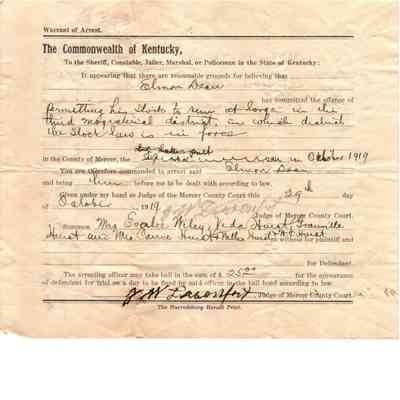 Warrant of Arrest.
The Commonwealth of Kentucky,
To the Sheriff, Constable, Jailer, Marshal, or Policeman in the State of Kentucky:
It appearing that there are reasonable grounds for believing that
Elmon Dean
has committed the offense of
permitting his Stock to run at large in the
third magisterial district, in which district
the Stock law is in force
in the County of Mercer, the in October 1919
You are therefore commanded to arrest said Elmon Dean
and bring him before me to be dealt with according to law.
Given under my hand as Judge of the Mercer County Court this 29th day
of October 1919
Judge of Mercer County Court.
Summons Mrs Wiley, Hurst, Granville
Hurst and Mrs Hurst Hurst
as witness for plaintiff and
for Defendant.
The arresting officer may take bail in the sum of $ 25.00 for the appearance
of defendant for trial on a day to be fixed by said officer in the bail bond according to law.
Judge of Mercer County Court.
The Harrodsburg Herald Print.